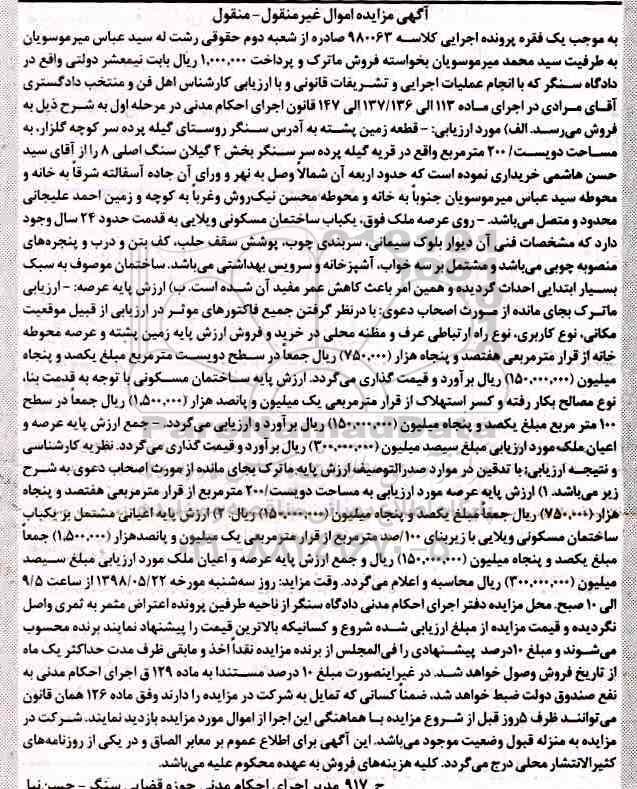 آگهی مزایده اموال غیرمنقول - منقول
به موجب یک فقره پرونده اجرایی کلاسه ۹۸۰۰۶۳ صادره از شعبه دوم حقوقی رشت له سید عباس میرموسویان
به طرفیت سید محمد میرموسویان بخواسته فروش ماترک و پرداخت ۱,۰۰۰,۰۰۰ ریال بابت نیمعشر دولتی واقع در
دادگاه سنگر که با انجام عملیات اجرایی و تشریفات قانونی و با ارزیابی کارشناس اهل فن و منتخب دادگستری
آقای مرادی در اجرای ماده ۱۱۳ الی ۱۳۷/۱۳۶ الی ۱۴۷ قانون اجرای احکام مدنی در مرحله اول به شرح ذیل به
فروش می‌رسد. الف) مورد ارزیابی: - قطعه زمین پشته به آدرس سنگر روستای گیله پرده سر کوچه گلزار، به
مساحت دویست/ ۲۰۰ مترمربع واقع در قریه گیله پرده سر سنگر بخش ۴ گیلان سنگ اصلی ۸ را از آقای سید
حسن هاشمی خریداری نموده است که حدود اربعه آن شمالاً وصل به نهر و ورای آن جاده آسفالته شرقاً به خانه و
محوطه سید عباس میرموسویان جنوباً به خانه و محوطه محسن نیک‌روش وغرباً به کوچه و زمین احمد علیجانی
محدود و متصل می‌باشد. - روی عرصه ملک فوق، یکباب ساختمان مسکونی ویلایی به قدمت حدود ۲۴ سال وجود
دارد که مشخصات فنی آن دیوار بلوک سیمانی، سربندی چوب، پوشش سقف حلب، کف بتن و درب و پنجره‌های
منصوبه چوبی می‌باشد و مشتمل بر سه خواب، آشپزخانه و سرویس بهداشتی می‌باشد. ساختمان موصوف به سبک
بسیار ابتدایی احداث گردیده و همین امر باعث کاهش عمر مفید آن شده است. ب) ارزش پایه عرصه: - ارزیابی
ماترک بجای مانده از مورث اصحاب دعوی: با درنظر گرفتن جمیع فاکتورهای موثر در ارزیابی از قبیل موقعیت
مکانی، نوع کاربری، نوع راه ارتباطی عرف و مظنه محلی در خرید و فروش ارزش پایه زمین پشته و عرصه محوطه
خانه از قرار مترمربعی هفتصد و پنجاه هزار (۷۵۰,۰۰۰) ریال جمعاً در سطح دویست مترمربع مبلغ یکصد و پنجاه
میلیون (۱۵۰,۰۰۰,۰۰۰) ریال برآورد و قیمت گذاری می‌گردد. ارزش پایه ساختمان مسکونی با توجه به قدمت بنا،
نوع مصالح بکار رفته و کسر استهلاک از قرار مترمربعی یک میلیون و پانصد هزار (۱,۵۰۰,۰۰۰) ریال جمعاً در سطح
۱۰۰ متر مربع مبلغ یکصد و پنجاه میلیون (۱۵۰,۰۰۰,۰۰۰) ریال برآورد و ارزیابی می‌گردد. - جمع ارزش پایه عرصه و
اعیان ملک مورد ارزیابی مبلغ سیصد میلیون (۳۰۰,۰۰۰,۰۰۰) ریال برآورد و قیمت گذاری می‌گردد. نظریه کارشناسی
و نتیجه ارزیابی: با تدقین در موارد صدرالتوصیف ارزش پایه ماترک بجای مانده از مورث اصحاب دعوی به شرح
زیر می‌باشد. ۱) ارزش پایه عرصه مورد ارزیابی به مساحت دویست/۲۰۰ مترمربع از قرار مترمربعی هفتصد و پنجاه
هزار (۷۵۰,۰۰۰) ریال جمعاً مبلغ یکصد و پنجاه میلیون (۱۵۰,۰۰۰,۰۰۰) ریال. ۲) ارزش پایه اعیانی مشتمل بر یکباب
ساختمان مسکونی ویلایی با زیربنای ۱۰۰/صد مترمربع از قرار مترمربعی یک میلیون و پانصدهزار (۱,۵۰۰,۰۰۰) جمعاً
مبلغ یکصد و پنجاه میلیون (۱۵۰,۰۰۰,۰۰۰) ریال و جمع ارزش پایه عرصه و اعیان ملک مورد ارزیابی مبلغ سیصد
میلیون (۳۰۰,۰۰۰,۰۰۰) ریال محاسبه و اعلام می‌گردد. وقت مزایده: روز سه‌شنبه مورخه ۱۳۹۸/۰۵/۲۲ از ساعت ۹/۵
الی ۱۰ صبح. محل مزایده دفتر اجرای احکام مدنی دادگاه سنگر از ناحیه طرفین پرونده اعتراض مثمر به ثمری واصل
نگردیده و قیمت مزایده از مبلغ ارزیابی شده شروع و کسانیکه بالاترین قیمت را پیشنهاد نمایند برنده محسوب
می‌شوند و مبلغ ۱۰درصد پیشنهادی را فی‌المجلس از برنده مزایده نقداً اخذ و مابقی ظرف مدت حداکثر یک ماه
از تاریخ فروش وصول خواهد شد. در غیراینصورت مبلغ ۱۰ درصد مستندا به ماده ۱۲۹ ق اجرای احکام مدنی به
نفع صندوق دولت ضبط خواهد شد، ضمناً کسانی که تمایل به شرکت در مزایده را دارند وفق ماده ۱۲۶ همان قانون
می‌توانند ظرف ۵روز قبل از شروع مزایده با هماهنگی این اجرا از اموال مورد مزایده بازدید نمایند. شرکت در
مزایده به منزله قبول وضعیت موجود می‌باشد. این آگهی برای اطلاع عموم بر معابر الصاق و در یکی از روزنامه‌های
کثیرالانتشار محلی درج می‌گردد. کلیه هزینه‌های فروش به عهده محکوم علیه می‌باشد.
ح ۹۱۷ مدیر اجرای احکام مدنی حوزه قضایی سنگر - حسن‌نیا